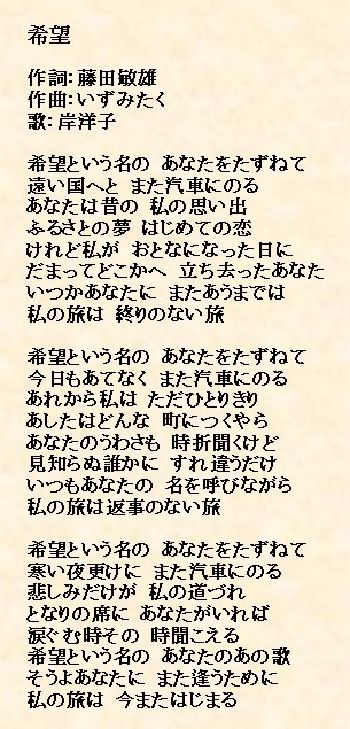 希望
作詞: 藤田敏雄
作曲: いずみたく
歌: 岸洋子
希望という名の あなたをたずねて
遠い国へと また汽車にのる
あなたは昔の 私の思い出
ふるさとの夢 はじめての恋
けれど私が おとなになった日に
だまってどこかへ 立ち去ったあなた
いつかあなたに またあうまでは
私の旅は 終りのない旅
希望という名の あなたをたずねて
今日もあてなく また汽車にのる
あれから私は ただひとりきり
あしたはどんな 町につくやら
あなたのうわさも 時折聞くけど
見知らぬ誰かに すれ違うだけ
いつもあなたの 名を呼びながら
私の旅は返事のない旅
希望という名の あなたをたずねて
寒い夜更けに また汽車にのる
悲しみだけが 私の道づれ
となりの席に あなたがいれば
涙ぐむ時その 時聞こえる
希望という名の あなたのあの歌
そうよあなたに また逢うために
私の旅は 今またはじまる